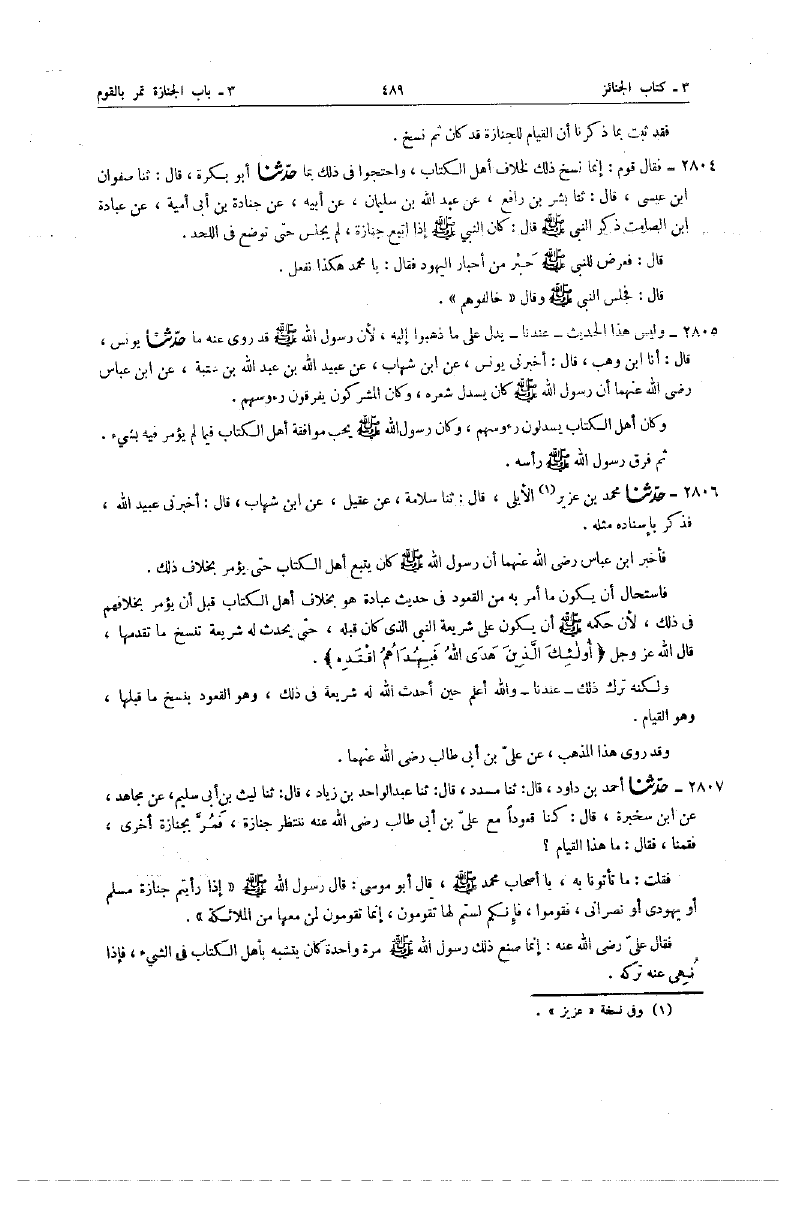 ٣ - كتاب الجنائز ٤٨٩ ٣ - باب الجنازة تمر بالقوم
فقد ثبت بما ذكرنا أن القيام للجنازة قد كان ثم نسخ .
٢٨٠٤ - فقال قوم : إنما نسخ ذلك لخلاف أهل الكتاب ، واحتجوا فى ذلك بما حدّثنا أبو بكرة ، قال : ثنا صفوان
ابن عيسى ، قال : ثنا بشر بن رافع ، عن عبد الله بن سليمان ، عن أبيه ، عن جنادة بن أبى أمية ، عن عبادة
ابن الصامت ذكر النبي ﷺ قال : كان النبي ﷺ إذا اتبع جنازة ، لم يجلس حتّى توضع فى اللحد .
قال : فعرض للنبي ﷺ حَبْر من أحبار اليهود فقال : يا محمد هكذا نفعل .
قال : فجلس النبي ﷺ وقال « خالفوهم » .
٢٨٠٥ - وليس هذا الحديث - عندنا - يدل على ما ذهبوا إليه ، لأن رسول الله ﷺ قد روى عنه ما حدّثنا يونس ،
قال : أنا ابن وهب ، قال : أخبرنى يونس ، عن ابن شهاب ، عن عبيد الله بن عبد الله بن عتبة ، عن ابن عباس
رضى الله عنهما أن رسول الله ﷺ كان يسدل شعره ، وكان المشركون يفرقون رءوسهم .
وكان أهل الكتاب يسدلون رءوسهم ، وكان رسول الله ﷺ يحب موافقة أهل الكتاب فيما لم يؤمر فيه بشىء .
ثم فرق رسول الله ﷺ رأسه .
٢٨٠٦ - حدّثنا محمد بن عزير (١) الأيلى ، قال : ثنا سلامة ، عن عقيل ، عن ابن شهاب ، قال : أخبرنى عبيد الله ،
فذكر بإسناده مثله .
فأخبر ابن عباس رضى الله عنهما أن رسول الله ﷺ كان يتبع أهل الكتاب حتّى يؤمر بخلاف ذلك .
فاستحال أن يكون ما أمر به من القعود فى حديث عبادة هو بخلاف أهل الكتاب قبل أن يؤمر بخلافهم
فى ذلك ، لأن حكمه ﷺ أن يكون على شريعة النبي الذى كان قبله ، حتّى يحدث له شريعة تنسخ ما تقدمها ،
قال الله عز وجل ﴿ أُولَئِكَ الَّذِينَ هَدَى اللهُ فَبِهُدَاهُمُ اقْتَدِهِ ﴾ .
ولكنه ترك ذلك - عندنا - والله أعلم حين أحدث الله له شريعة فى ذلك ، وهو القعود بنسخ ما قبلها ،
وهو القيام .
وقد روى هذا المذهب ، عن علىّ بن أبى طالب رضى الله عنهما .
٢٨٠٧ - حدّثنا أحمد بن داود ، قال : ثنا مسدد ، قال : ثنا عبد الواحد بن زياد ، قال : ثنا ليث بن أبى سليم ، عن مجاهد ،
عن ابن سخبرة ، قال : كنا قعوداً مع علىّ بن أبى طالب رضى الله عنه ننتظر جنازة ، فَمُرَّ بجنازة أخرى ،
فقمنا ، فقال : ما هذا القيام ؟
فقلت : ما تأتونا به ، يا أصحاب محمد ﷺ ، قال أبو موسى : قال رسول الله ﷺ « إذا رأيتم جنازة مسلم
أو يهودى أو نصرانى ، فقوموا ، فإنكم لستم لها تقومون ، إنما تقومون لمن معها من الملائكة » .
فقال علىّ رضى الله عنه : إنما صنع ذلك رسول الله ﷺ مرة واحدة كان يتشبه بأهل الكتاب فى الشىء ، فإذا
نُهى عنه تركه .
(١) وفى نسخة « عزيز » .